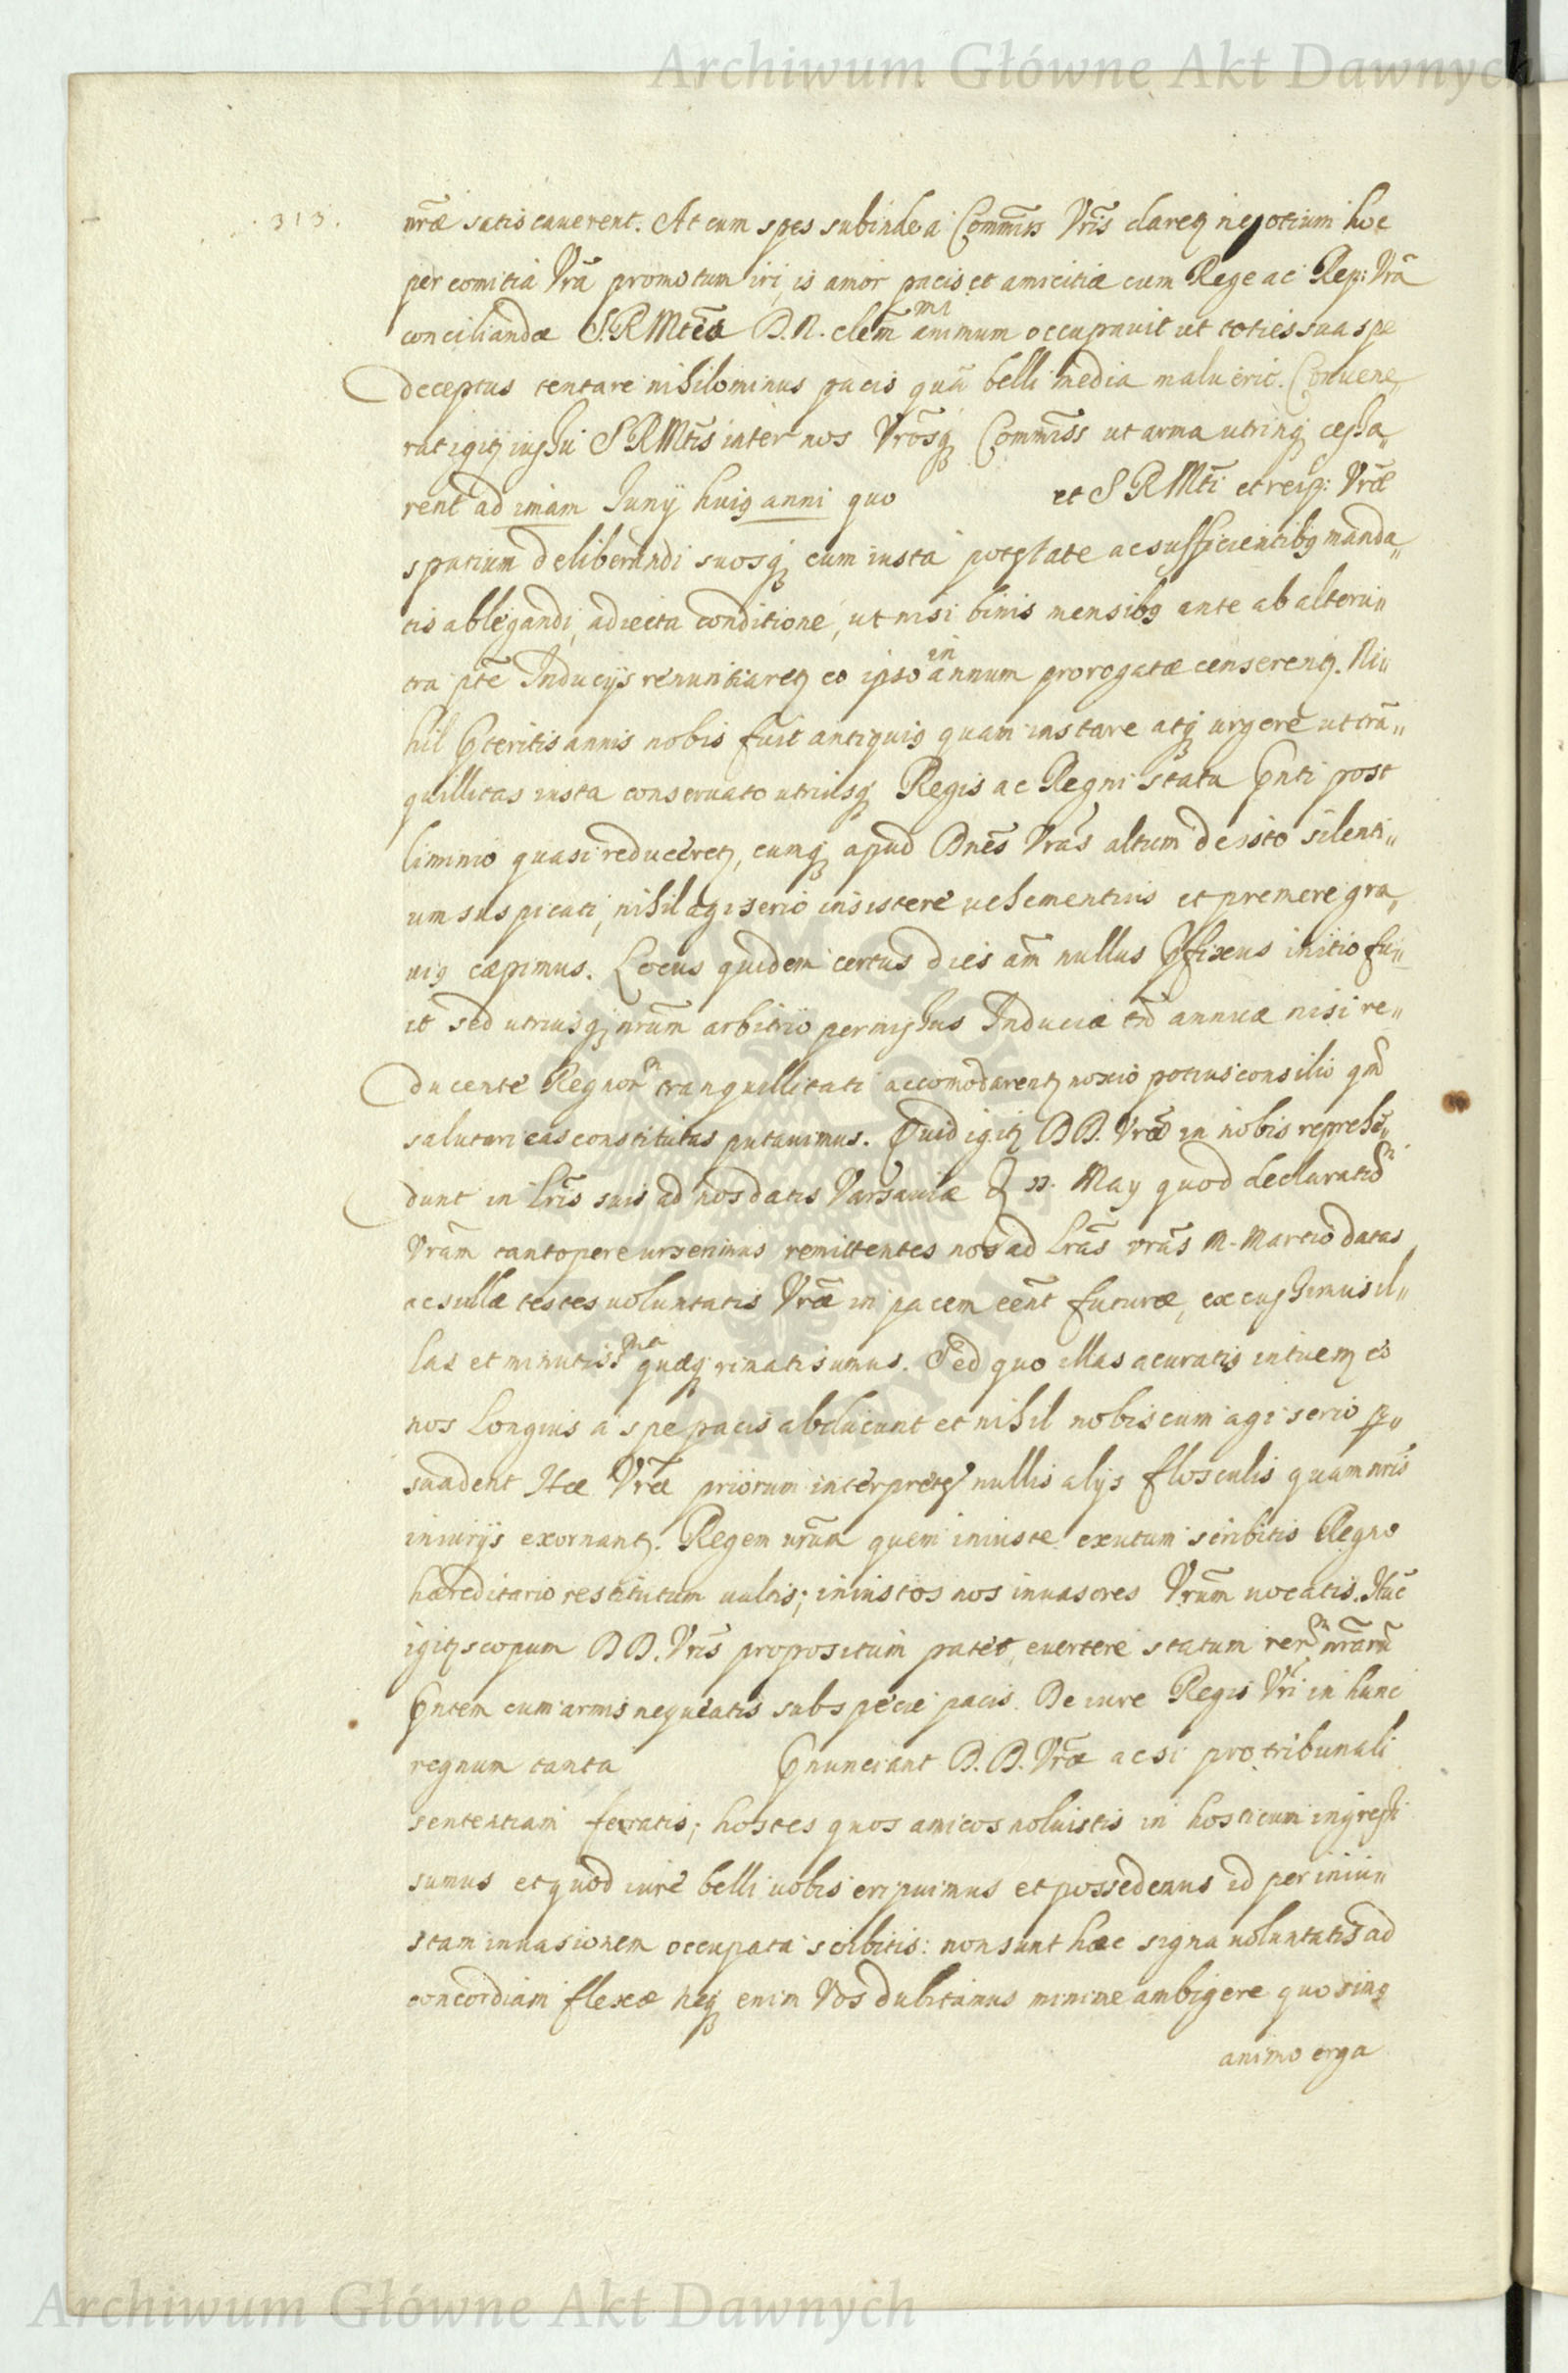 Archiwum Główne Akt Dawnych
313.
nr̃æ satis cauerent. At cum spes subinde a Com̃iss Vr̃is claret̨ negotium hoc
per comitia Vr̃a promotum iri, is amor pacis et amicitiæ cum Rege ac Rep: Vr̃a
conciliandæ S.R.Mtẽs D.N. clem̃mi animum occupauit ut toties sua spe
deceptus tentare nihilominus pacis quã belli media maluerit. Conuene„
rat igit̨ iussu S R Mtĩs inter nos Vr̃osq̨ Com̃iss ut arma utrinq̨ cessa„
rent ad imam Junÿ huiꝰ anni quo et S R Mtĩ et reip: Vr̃æ
spatium deliberandi suosq̨ cum iusta potestate ac sufficientibꝰ manda„
tis ablegandi, adiecta conditione, ut nisi binis mensibꝰ ante ab alteru„
tra pt̃e Inducÿs renuntiaret̨ eo ipso in annum prorogatæ censerent̨. Ni„
hil p̃teritis annis nobis fuit antiquiꝰ quam instare atq̨ urgere ut trã„
quillitas iusta conseruato utriusq̨ Regis ac Regni statu p̃nti post
liminio quasi reduceret̨, cumq̨ apud Dnẽs Vrãs altum de isto silenti„
um suspicati, nihil agi serio insistere uehementius et premere gra„
uiꝰ cæpimus. Locus quidem certus dies am̃ nullus p̃fixus initio fu„
it sed utriusq̨ nrũm arbitrio permissus Induciæ tñ annuæ nisi re„
ducente Regnor̃ tranquillitati accomodarent̨ noxio potius consilio qm̃
salutari eas constitutas putauimus. Quid igit̨ DD. Vr̃æ in nobis reprehẽ„
dunt in Lr̃is suis ad nos datis Varsauiæ May quod declaratiõn
Vrãm tantopere urserimus remittentes nos ad Lrãs vrãs M. Martio datas
ac si illæ testes uoluntatis Vr̃æ in pacem eẽnt futuræ, excussimus il„
las et minutiss̃ma quæq̨ rimati sumus. Sed quo illas acuratiꝰ intuem̨ eo
nos longius a spe pacis abducunt et nihil nobiscum agi serio p„
suadent Hæ Vr̃æ priorum interpretes nullis alÿs flosculis quam nr̃is
iniurÿs exornant̨. Regem nrũm quem iniuste exutum scribitis Regno
hæreditario restitutum uultis; iniustos nos inuasores Vrũm uocatis. Hũc
igit̨ scopum DD. Vr̃is propositum patet, euertere statum rer̃ nrãrũ
p̃ntem cum armis nequeatis sub specie pacis. De iure Regis Vrĩ in hunc
regnum tanta p̃nunciant D.D. Vr̃æ ac si pro tribunali
sententiam feratis; hostes quos amicos noluistis in hosticum ingressi
sumus et quod iure belli uobis eripuimus et possedemus id per iniu„
stam inuasionem occupata scribitis: non sunt hæc signa uoluntatis ad
concordiam flexæ neq̨ enim Vos dubitamus minime ambigere quo simꝰ
animo erga
Archiwum Główne Akt Dawnych